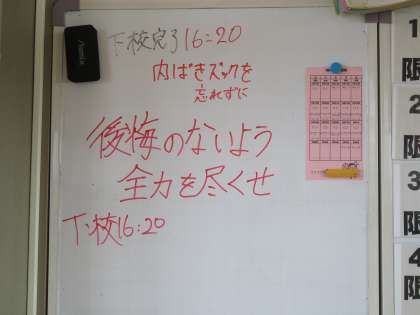 下校完了16:20
内ばきズックを
忘れずに
後悔のないよう
全力を尽くせ
下校16:20
1
限
2
限
3
限
4